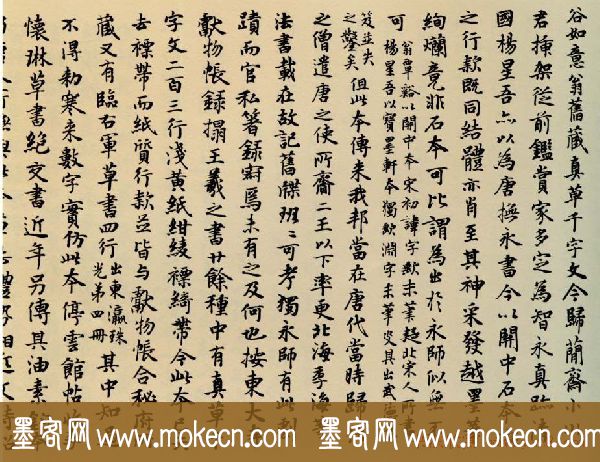 谷如意翁舊藏真草千字文今歸蘭齋小川
君插架從前鑑賞家多定為智永真跡清
國楊星吾亦以為唐撫永書今以關中石本
之行款既同結體亦肖至其神采發越墨華
絢爛竟非石本可比謂為出於永師似無不
可
翁覃谿以關中本宋初諱字缺末筆題北宋人所書
楊星吾以寶墨軒本獨缺淵字末筆定其出
之鑿矣但此本傳来我邦當在唐代當時歸
之僧遣唐之使所齎二王以下率更北海季海等
法書載在故記舊牒班二可考獨永師有此剧
蹟而官私箸錄寂焉未有之及何也按東大
獻物帳錄搨王羲之書廿餘種中有真草
字文二百三行淺黃紙紺綾褾綺帶今此本
去褾帶而紙質行款並皆与獻物帳合秘府
藏又有臨右軍草書四行
出東瀛珠
光第四冊
其中知
不得勅寒来數字實仿此本停雲館帖
懷琳草書絕交書近年另傳其油素
墨客网 www.mokecn.com 墨客网 www.mokecn.com